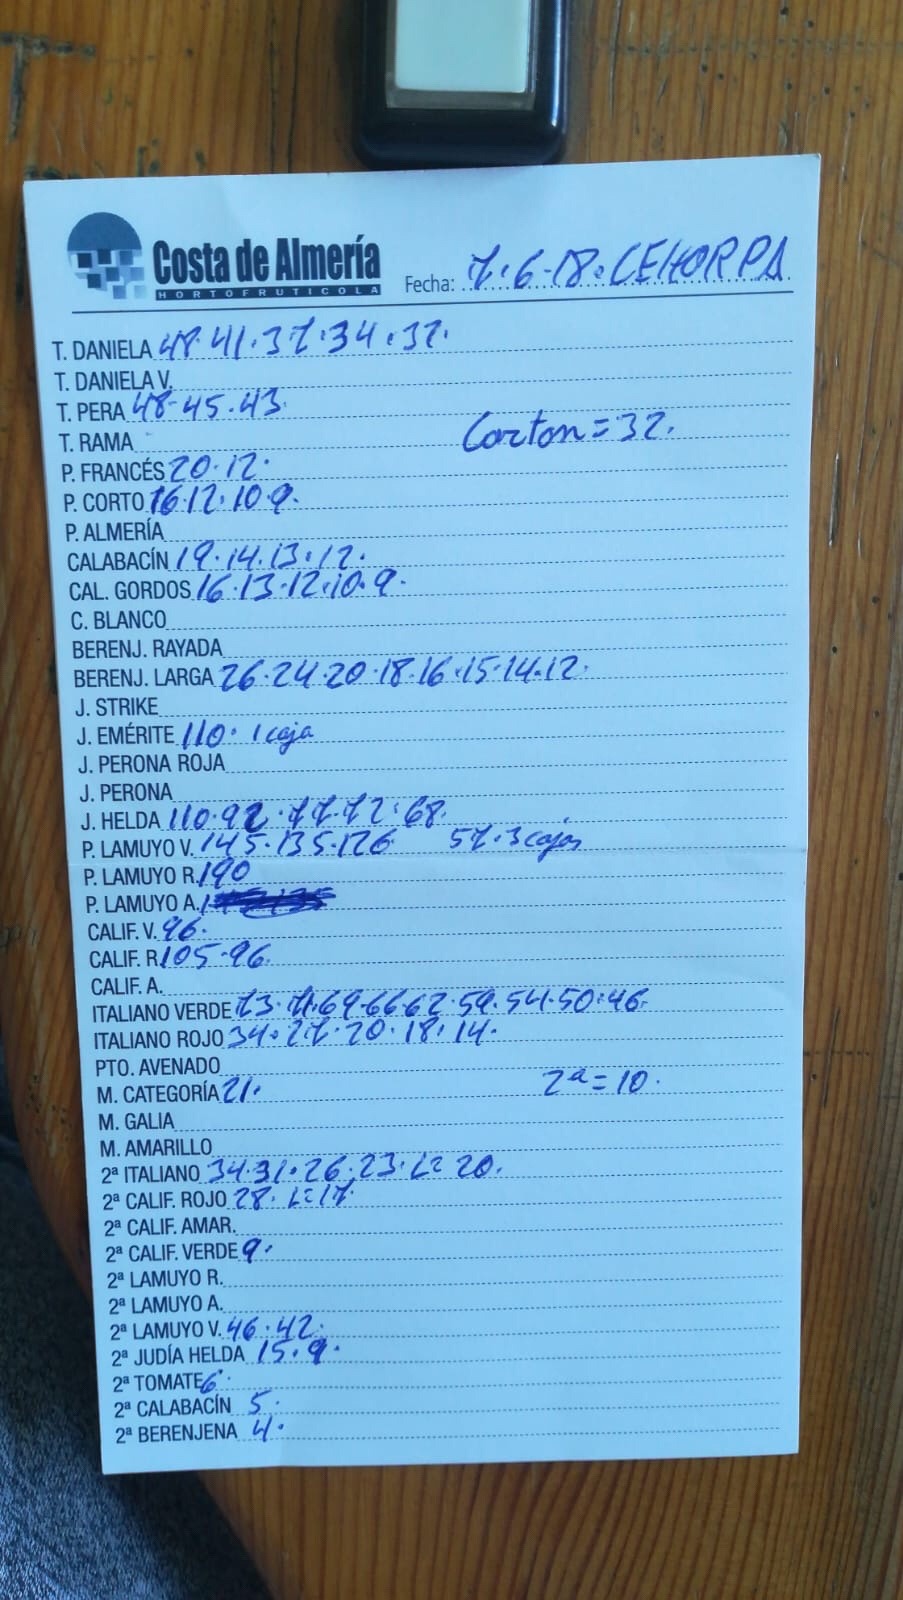 Costa de Almería
HORTOFRUTICOLA
Fecha: 7.6-18. CEHORPA
T. DANIELA 48.41.37.34.32.
T. DANIELA V.
T. PERA 48-45.43.
T. RAMA Carton=32.
P. FRANCÉS 20.12.
P. CORTO 16.12.10.9.
P. ALMERÍA
CALABACÍN 19.14.13.12.
CAL. GORDOS 16.13.12.10.9.
C. BLANCO
BERENJ. RAYADA
BERENJ. LARGA 26.24.20.18.16.15.14.12.
J. STRIKE
J. EMÉRITE 110. 1 caja
J. PERONA ROJA
J. PERONA
J. HELDA 110.92.77.72.68.
P. LAMUYO V. 145.135.126 57.3 cajas
P. LAMUYO R. 190
P. LAMUYO A.
CALIF. V. 96.
CALIF. R. 105.96.
CALIF. A.
ITALIANO VERDE 73.71.69.66.62.59.54.50.46.
ITALIANO ROJO 34.27.20.18.14.
PTO. AVENADO
M. CATEGORÍA 21. 2ª=10.
M. GALIA
M. AMARILLO
2ª ITALIANO 34.31.26.23.L=20.
2ª CALIF. ROJO 28. L=17.
2ª CALIF. AMAR.
2ª CALIF. VERDE 9.
2ª LAMUYO R.
2ª LAMUYO A.
2ª LAMUYO V. 46.42.
2ª JUDÍA HELDA 15.9.
2ª TOMATE 6.
2ª CALABACÍN 5.
2ª BERENJENA 4.